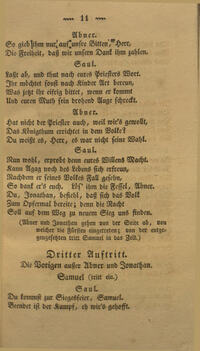 11
Abner.
So gieb ihm nur auf unsre Bitten, Herr,
Die Freiheit, daß wir unsern Dank ihm zahlen.
Saul.
Laßt ab, und thut nach eures Priesters Wort.
Ihr möchtet sonst nach Kinder Art bereun,
Was jetzt ihr eifrig bittet, wenn er kommt
Und euren Muth sein drohend Auge schreckt.
Abner.
Hat nicht der Priester auch, weil wir's gewollt,
Das Königthum errichtet in dem Volk?
Du weißt es, Herr, es war nicht seine Wahl.
Saul.
Nun wohl, erprobt denn eures Willens Macht.
Kann Agag noch des Lebens sich erfreun,
Nachdem er seines Volkes Fall gesehn,
So dank' er's euch. Lös' ihm die Fessel, Abner.
Du, Jonathan, befiehl, daß sich das Volk
Zum Opfermahl bereite; denn die Nacht
Soll auf dem Weg zu neuem Sieg uns finden.
(Abner und Jonathan gehen von der Seite ab, von
welcher die Fürsten eingetreten; von der entge-
gengesetzten tritt Samuel in das Zelt.)
Dritter Auftritt.
Die Vorigen außer Abner und Jonathan.
Samuel (tritt ein.)
Saul.
Du kommst zur Siegesfeier, Samuel.
Beendet ist der Kampf, eh wir's gehofft.